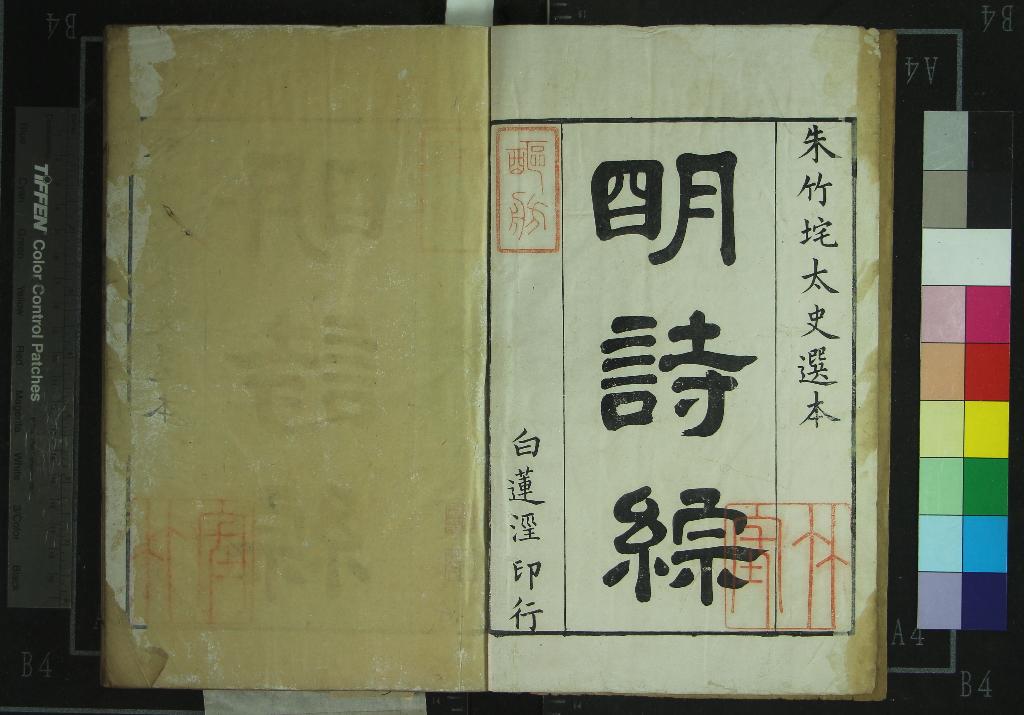 朱竹垞太史選本
明詩綜
白蓮涇印行
TIFFEN Color Control Patches
B4
B4
A4
A4
B4
B4